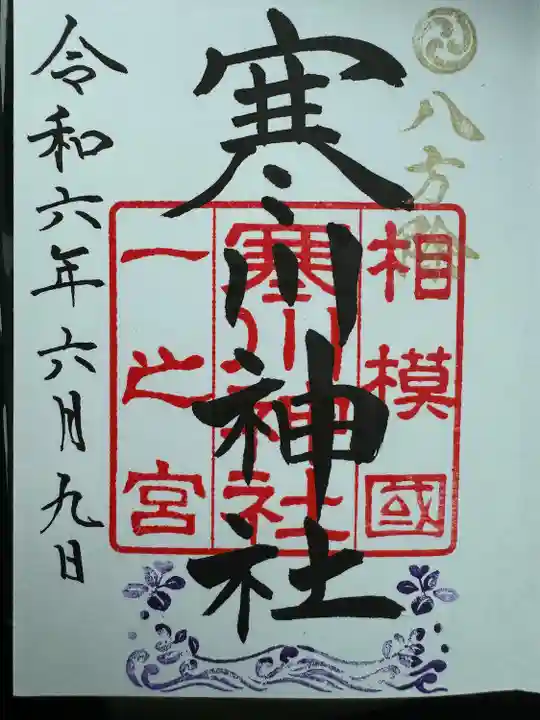 八方除
相模國
寒川神社
寒川神社
一之宮
令和六年六月九日